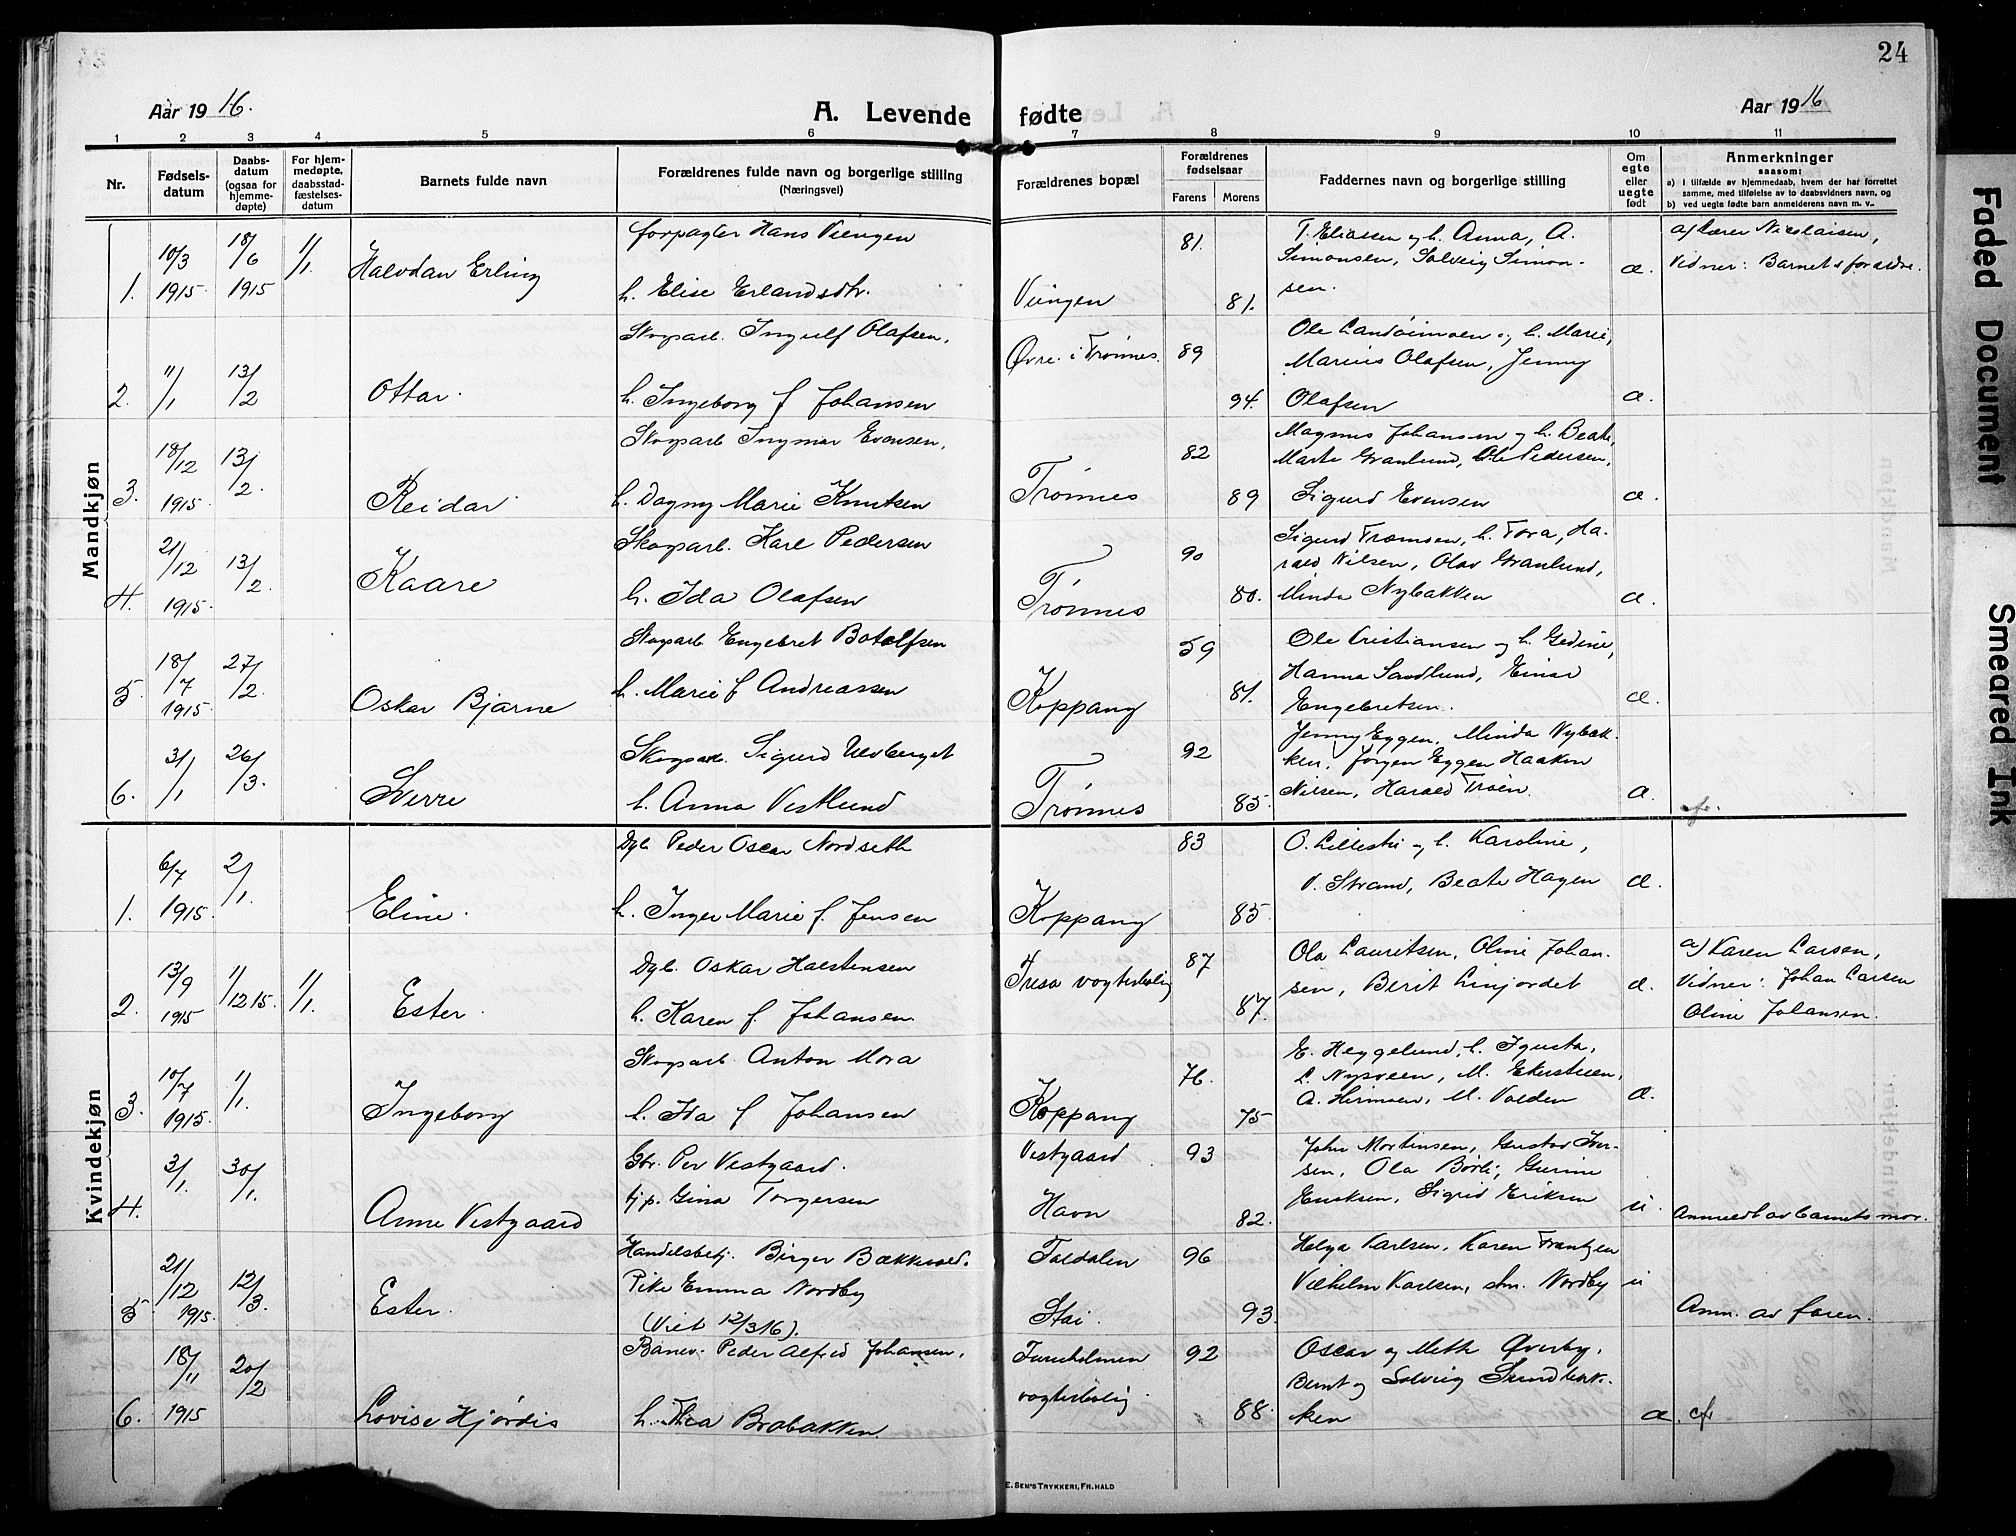 24
Aar 1916.
A. Levende fødte
Aar 1916
1 2 3 4 5 6 7 8 9 10 11
Nr.
Fødsels-
datum
Daabs-
datum
(ogsaa for
hjemme-
døpte)
For hjem-
medøpte,
daabsstad-
fæstelses-
datum
Barnets fulde navn
Forældrenes fulde navn og borgerlige stilling
(Næringsvei)
Forældrenes bopæl
Forældrenes
fødselsaar
Farens Morens
Faddernes navn og borgerlige stilling
Om
egte
eller
uegte
født
Anmerkninger
saasom:
a) I tilfælde av hjemmedaab, hvem der har forrettet
samme, med tilføielse av to daabsvidners navn, og
b) ved uegte fødte barn anmelderens navn m. v.
Mandkjøn
1. 10/3 1915. 18/6 1915 1/1. Halvdan Erling
forpagter Hans Viengen
h. Elise Erlandsdtr.
81. 81.
T. Eliassen og h. Anna, A.
Simonsen, Solveig Simon-
sen.
æ
a) Lærer Nicolaisen,
Vidner: Barnets forældre.
2. 11/1 13/2 Ottar.
Skogsarb. Ingulf Olafsen,
h. Ingeborg f Johansen
Øvre i Trønnes. 89 94.
Ole Landsimoen og h. Marie,
Marius Olafsen, Jenny
Olafsen
æ.
3. 18/12 1915. 13/2. Reidar
Skogsarb Ingmar Evensen,
h. Dagny Marie Knutsen
Trønnes 82 89
Magnus Johansen og h. Beate,
Marte Granlund, Ole Pedersen,
Sigurd Evensen
æ.
4. 21/12 1915. 13/2. Kaare
Skogsarb. Karl Pedersen
h. Ida Olafsen
Trønnes 90 80.
Sigurd Tromsen, h. Tora, Ha-
rald Nilsen, Olav Granlund,
Minda Nybakken
æ.
5. 18/7 1915. 27/2. Oskar Bjarne
Skogsarb Engebret Botolfsen
h. Marie f Andreassen
Koppang 59 81.
Ole Cristiansen og h. Gedine,
Hanna Sandlund, Einar
Engebretsen.
æ.
6. 31/1 26/3. Sverre
Skogsarb. Sigurd Ulvberget
h. Anna Vestlund
Trønnes 92 85.
Jenny Eggen, Minda Nybak-
ken, Jørgen Eggen Haakon
Nilsen, Harald Trøen.
æ. cfr.
Kvindekjøn
1. 6/7 1915. 2/1. Eline.
Dgl. Peder Oscar Nordseth
h. Inger Marie f. Jensen
Koppang 83 85.
O. Lillestu og h. Karoline,
V. Strand, Beate Hagen
æ.
2. 13/9 1915 1/12 15. 1/1. Ester.
Dgl. Oskar Halstensen
h. Karen f. Johansen.
Tresa vogterbolig 87 87.
Ola Lauritsen, Oline Johan-
sen, Berit Linjordet
æ.
a) Karen Larsen,
Vidner: Johan Larsen
Oline Johansen.
3. 10/7 1915. 1/1. Ingeborg
Skogsarb. Anton Mora
h. Ida f Johansen
Koppang 76. 75
E. Heggelund, h. Igusta,
L. Nysveen, M. Ekerstuen,
A. Hirmoen, M. Volden
æ.
4. 3/1. 30/1. Anne Vestgaard
Gbr. Per Vestgaard.
tjp. Gina Torgersen
Vestgaard 93
Havn 82.
John Mortinsen, Gustav Iver-
sen, Ola Borli, Gunne
Eriksen, Sigrid Eriksen
u.
Anmeldt av barnets mor.
5 21/12 1915. 12/3. Ester.
Handelsbetj. Birger Bækkevold.
Pike Emma Nordby
(Viet 12/3 16).
96
Stai. 93.
Helga Karlsen, Karen Frantzen
Vilhelm Karlsen, Nordby
u
Anm. av faren.
6. 18/11 1915 20/2 Lovise Hjørdis
Banev. Peder Alfred Johansen,
h. Thea Brobakken.
Furuholmen 92
vogterbolig. 88.
Oscar og Meth Øverby,
Bernt og Solveig Sundbak-
ken
æ. cfr
E. SEM'S TRYKKERI, FR.HALD
Faded Document
Smeared Ink